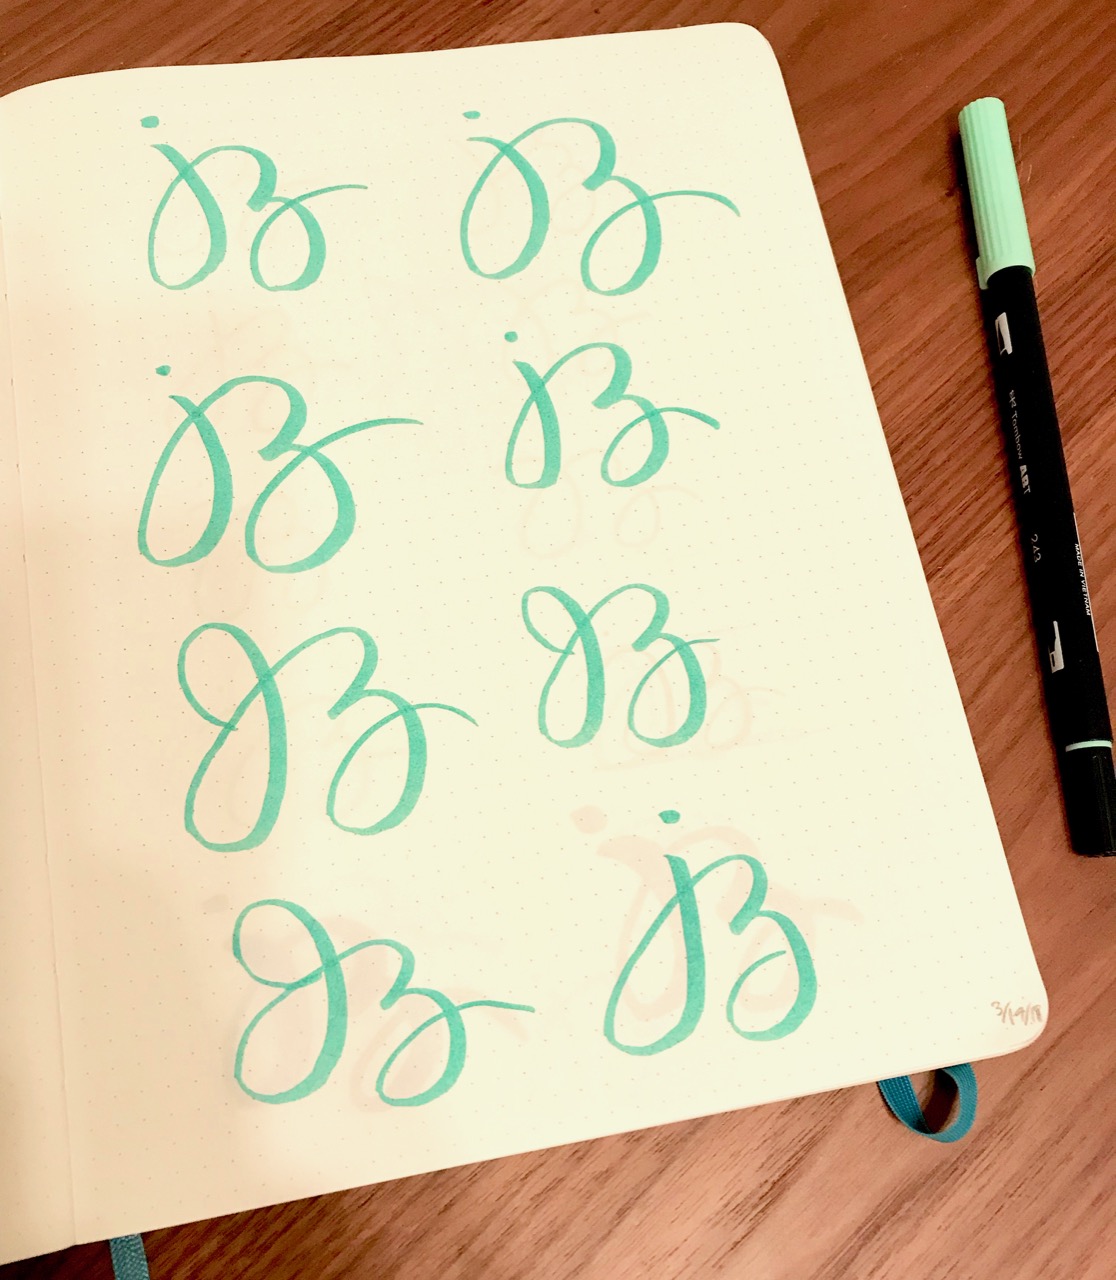 jz jz
jz jz
Jz Jz
Jz jz
3/19/18
Tombow ABT
243
MADE IN VIETNAM